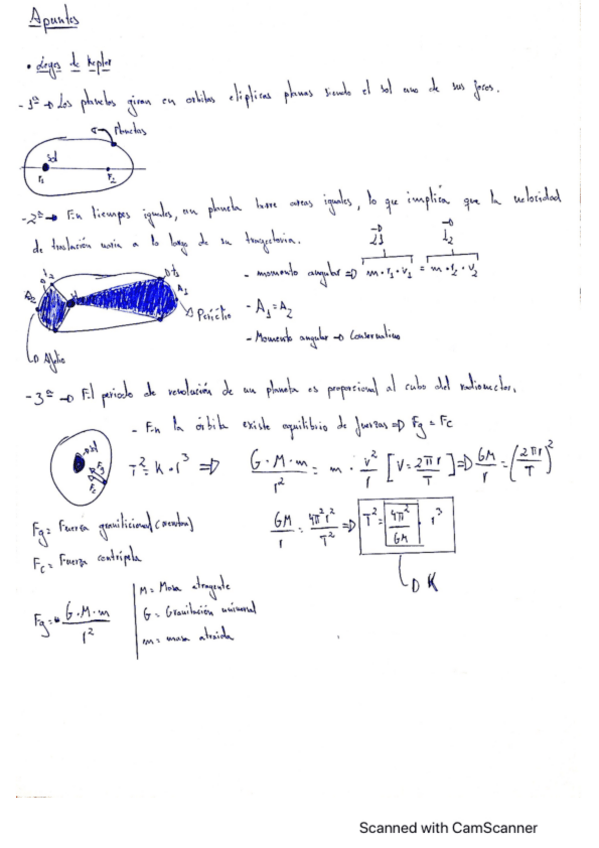 Apuntes
• Leyes de Kepler
- 1ª → Los planetas giran en orbitas elipticas planas siendo el sol uno de sus focos.
Planetas
sol
F1 F2
- 2ª → En tiempos iguales, un planeta barre areas iguales, lo que implica que la velocidad
de traslación varia a lo largo de su trayectoria.
L1 L2
- momento angular => m · r1 · v1 = m · r2 · v2
t2 t1
A2 A1
Perictio
- A1 = A2
- Momento angular → Conservativo
Afelio
- 3ª → El periodo de revolución de un planeta es proporcional al cubo del radiovector.
- En la órbita existe equilibrio de fuerzas => Fg = Fc
sol
T² = K · r³ => G · M · m / r² = m · v² / r [V = 2πr / T] => GM / r = (2πr / T)²
Fg = Fuerza gravitacional (newton)
GM / r = 4π²r² / T² => T² = 4π² / GM · r³
Fc = Fuerza centrípeta
K
M = Masa atrayente
Fg = G · M · m / r²
G = Gravitación universal
m = masa atraida
Scanned with CamScanner